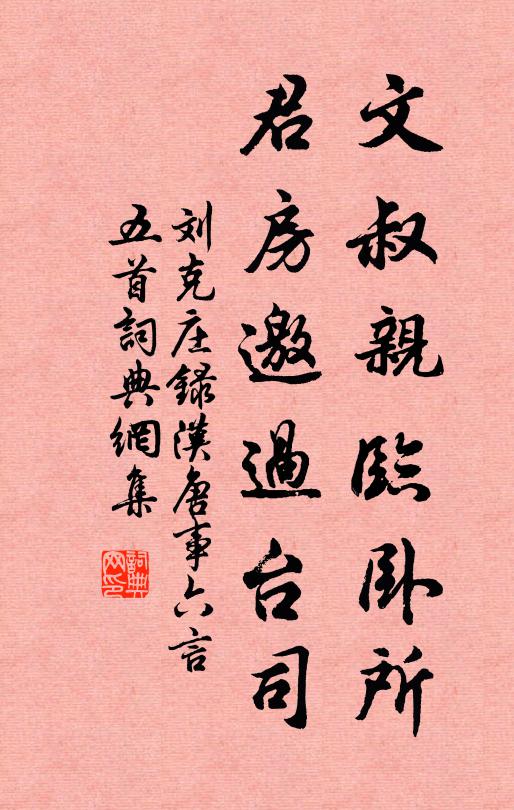 文叔親臨卧所
君房邀過台司
刘克庄録漢唐事六言
五首詞典網集
詞典網印